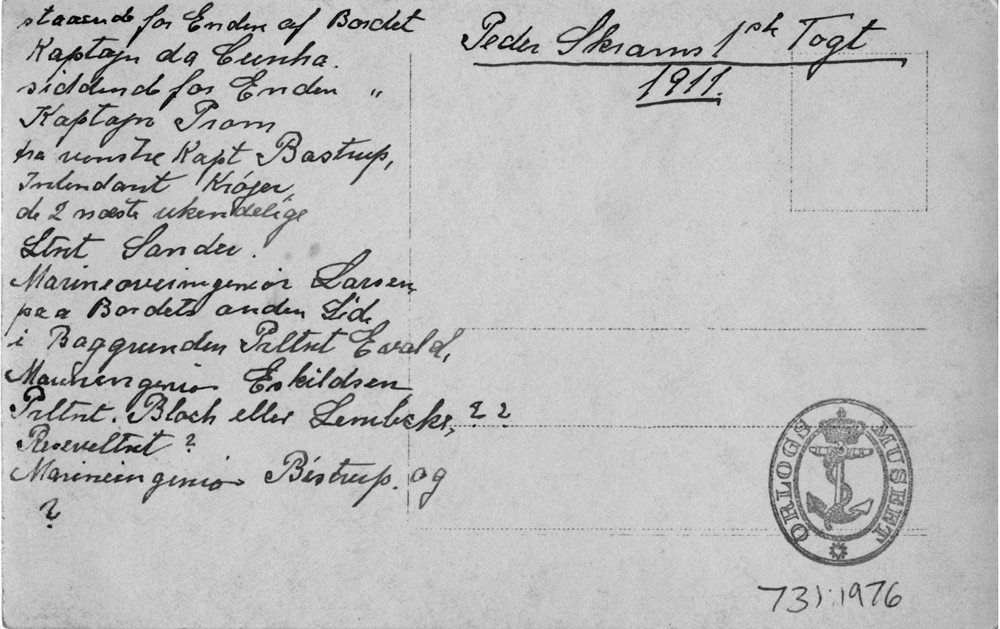 staaende for Enden af Bordet
Kaptajn da Cunha.
siddende for Enden "
Kaptajn Pram
fra venstre Kapt Bastrup,
Intendant Krøjer,
de 2 næste ukendelige
Ltnt Sander.
Marineoveringeniør Larsen,
paa Bordets anden Side
i Baggrunden Prltnt Evald,
Marineingeniør Eskildsen
Prltnt. Bloch eller Lembcke, ? ?
Reserveltnt ?
Marineingeniør Bistrup. og
?
Peder Skrams 1ste Togt
1911.
ORLOGS MUSEET
731:1976